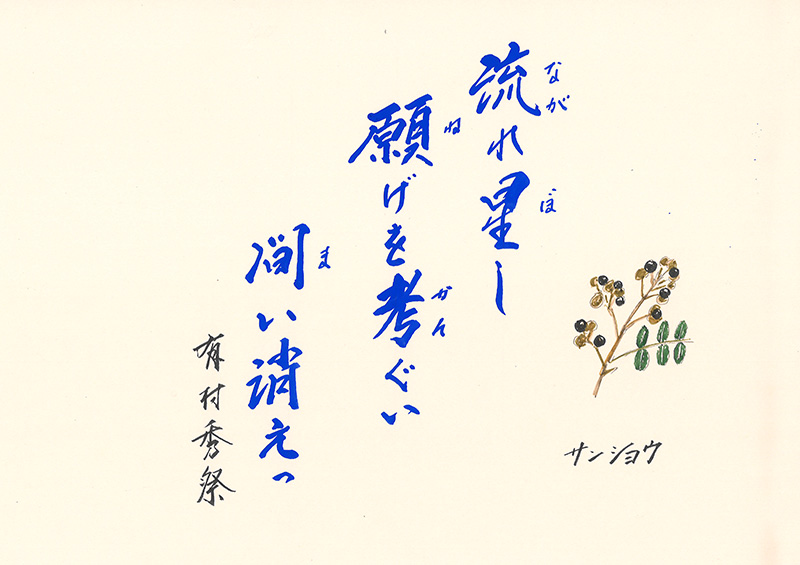 流れ星し
なが
ぼ
願げを考ぐい
ね
かん
間い消えっ
ま
有村秀祭
サンショウ